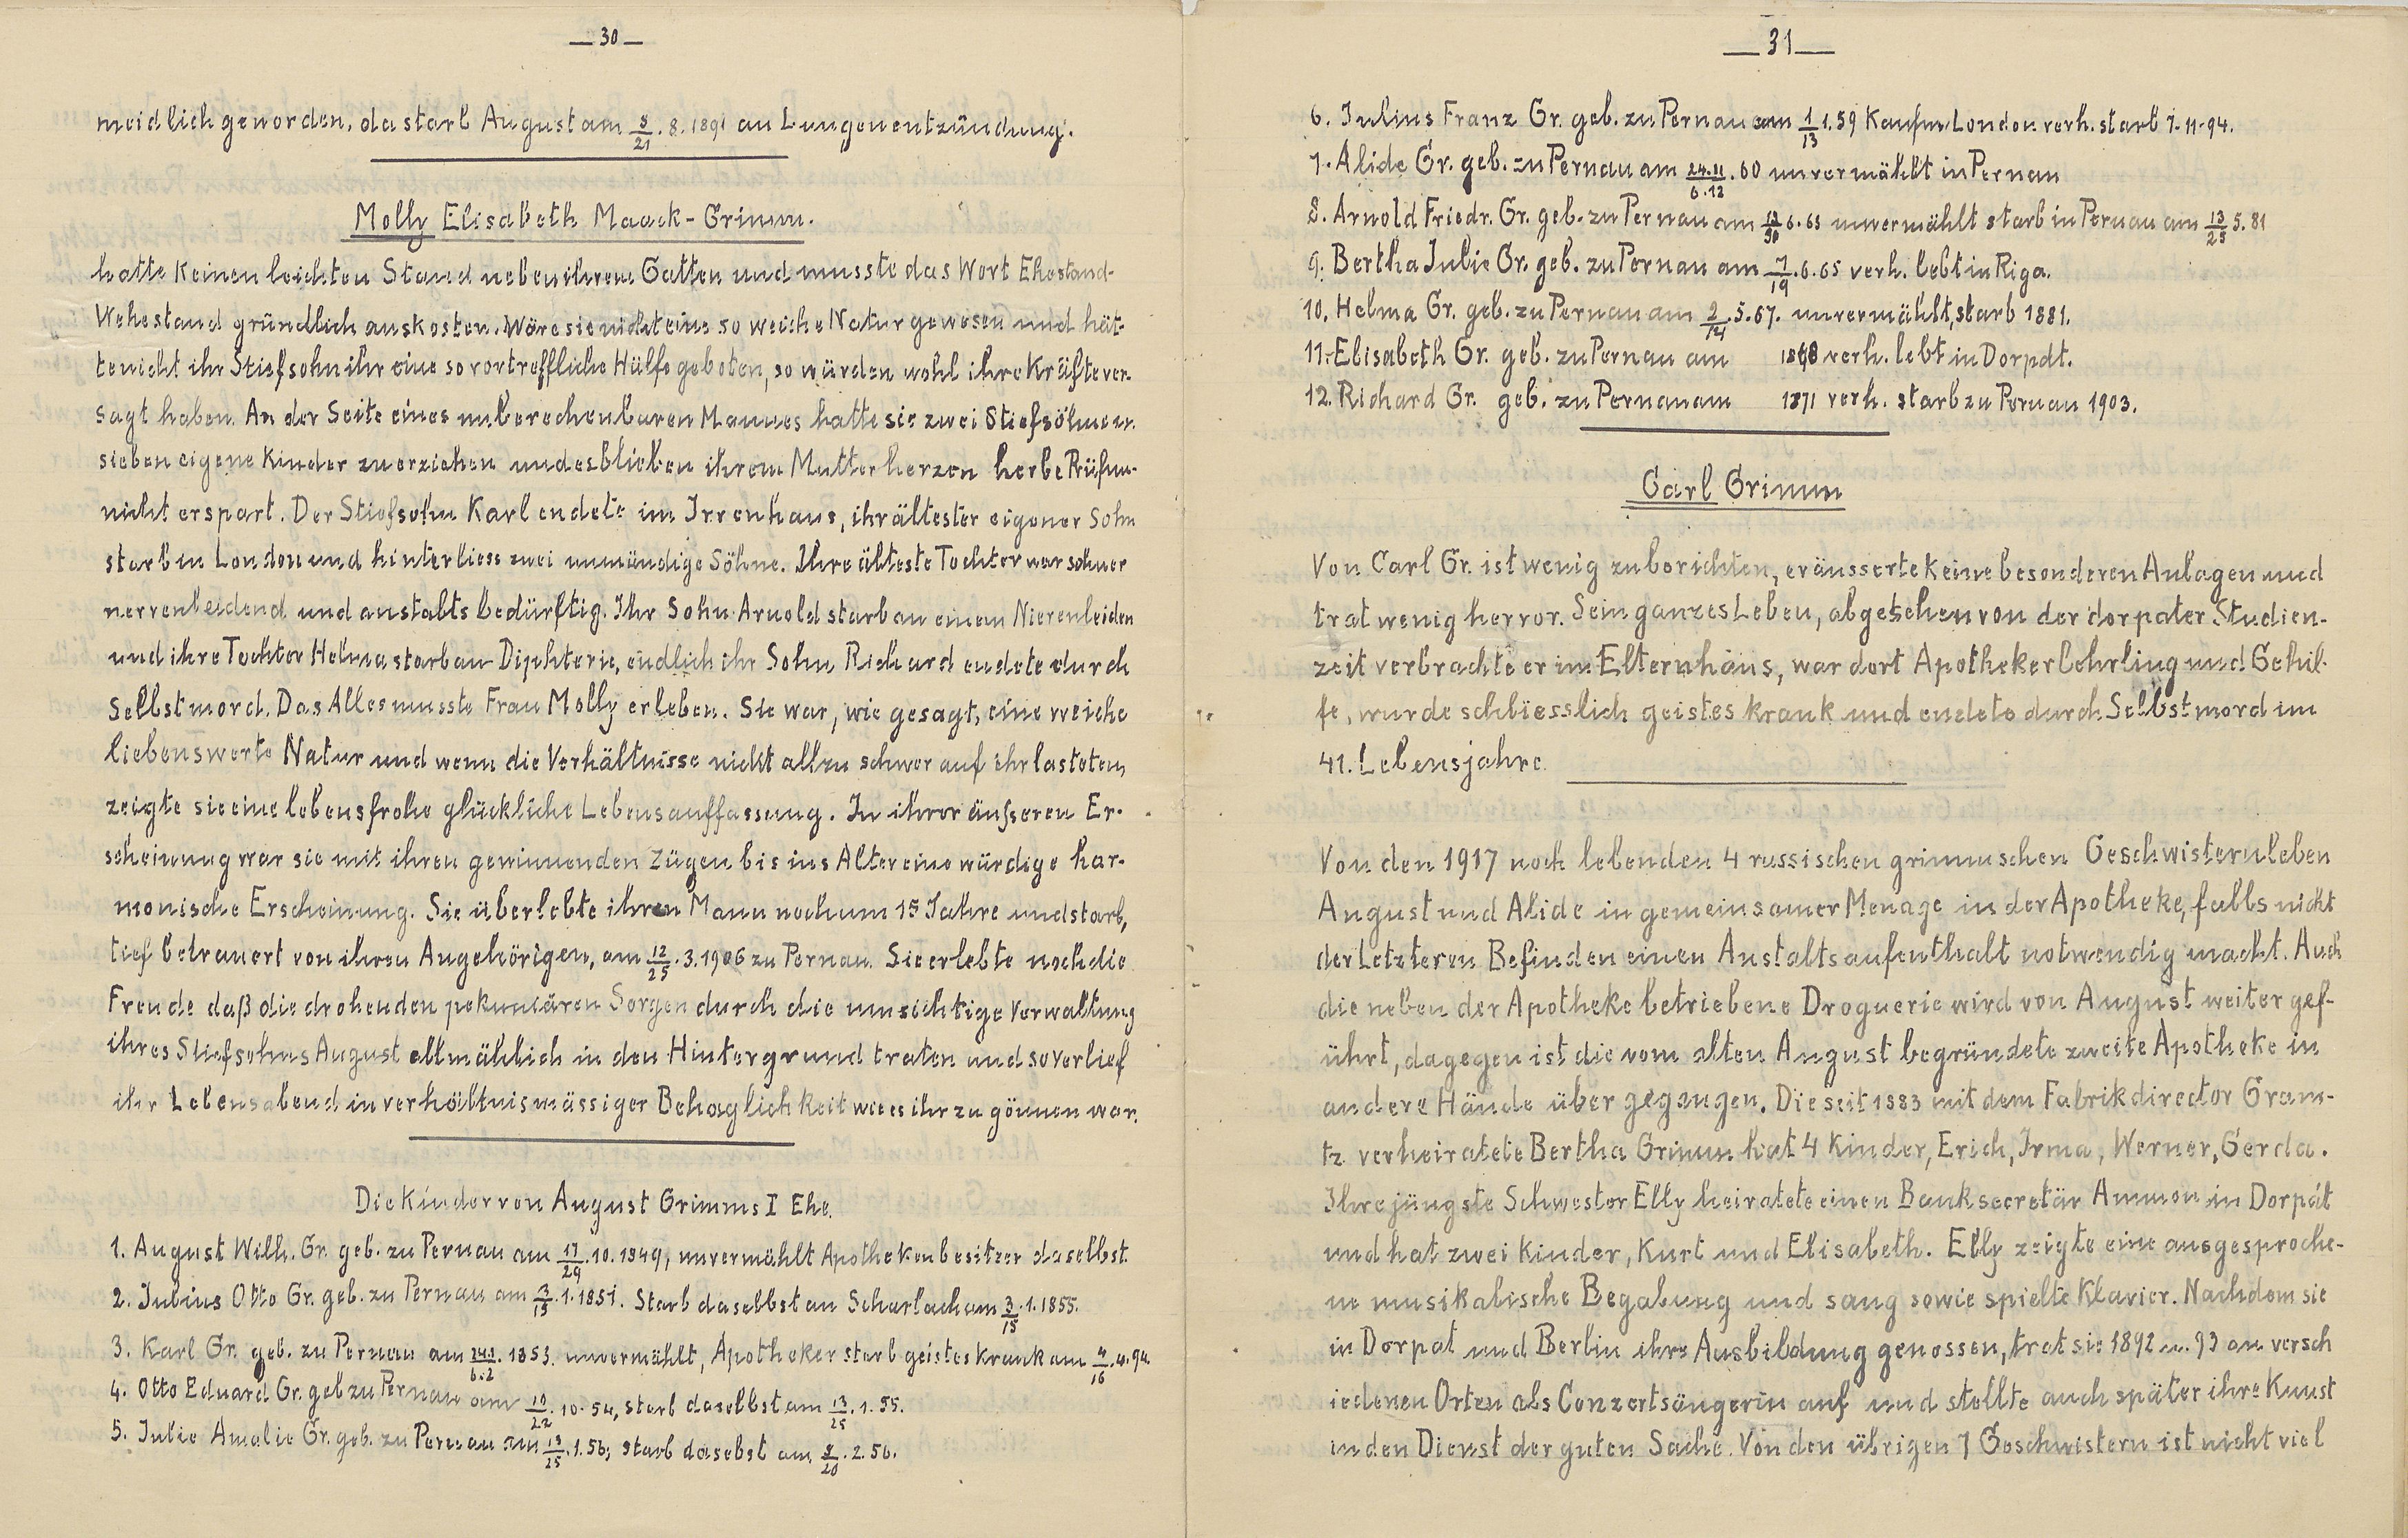 — 30 —
meidlich geworden, da starb August am 9/21. 8. 1891 an Lungenentzündung.
Molly Elisabeth Maack-Grimm.
hatte keinen leichten Stand neben ihrem Gatten und musste das Wort Ehestand-
Wehestand gründlich auskosten. Wäre sie nicht eine so weiche Natur gewesen und hät-
te nicht ihr Stiefsohn ihr eine so vortreffliche Hülfe geboten, so würden wohl ihre Kräfte ver-
sagt haben. An der Seite eines unberechenbaren Mannes hatte sie zwei Stiefsöhne u.
sieben eigene Kinder zu erziehen und es blieben ihrem Mutterherzen herbe Prüfun-
nicht erspart. Der Stiefsohn Karl endete im Irrenhaus, ihr ältester eigener Sohn
starb in London und hinterliess zwei unmündige Söhne. Ihre älteste Tochter war schwer
nervenleidend und anstaltsbedürftig. Ihr Sohn Arnold starb an einem Nierenleiden
und ihre Tochter Helma starb an Diphterie, endlich ihr Sohn Richard endete durch
Selbstmord. Das Alles musste Frau Molly erleben. Sie war, wie gesagt, eine weiche
liebenswerte Natur und wenn die Verhältnisse nicht allzu schwer auf ihr lasteten,
zeigte sie eine lebensfrohe glückliche Lebensauffassung. In ihrer äußeren Er-
scheinung war sie mit ihren gewinnenden Zügen bis ins Alter eine würdige har-
monische Erscheinung. Sie überlebte ihren Mann noch um 15 Jahre und starb,
tief betrauert von ihren Angehörigen, am 12/25. 3. 1906 zu Pernau. Sie erlebte noch die
Freude daß die drohenden pekuniären Sorgen durch die umsichtige Verwaltung
ihres Stiefsohns August allmählich in den Hintergrund traten und so verlief
ihr Lebensabend in verhältnismässiger Behaglichkeit wie es ihr zu gönnen war.
Die Kinder von August Grimms I Ehe.
1. August Wilh. Gr. geb. zu Pernau am 17/29. 10. 1849, unvermählt Apothekenbesitzer daselbst.
2. Julius Otto Gr. geb. zu Pernau am 3/15. 1. 1851. Starb daselbst an Scharlach am 3/15. 1. 1855.
3. Karl Gr. geb. zu Pernau am 24.1/6.2. 1853. unvermählt, Apotheker starb geisteskrank am 4/16. 4. 94.
4. Otto Eduard Gr. geb zu Pernau am 10/22. 10. 54, starb daselbst am 13/25. 1. 55.
5. Julie Amalie Gr. geb. zu Pernau am 13/25. 1. 56, starb dasebst am 8/20. 2. 56.
— 31 —
6. Julius Franz Gr. geb. zu Pernau am 1/13 1. 59 Kaufm London verh. starb 7. 11. 94.
7. Alide Gr. geb. zu Pernau am 24.11/6.12. 60 unvermählt in Pernau
8. Arnold Friedr. Gr. geb. zu Pernau am 18/30 6. 63 unvermählt starb in Pernau am 13/25 5. 81
9. Bertha Julie Gr. geb. zu Pernau am 7/19. 6. 65 verh. lebt in Riga.
10. Helma Gr. geb. zu Pernau am 2/14. 5. 67. unvermählt, starb 1881.
11. Elisabeth Gr. geb. zu Pernau am 1868 verh. lebt in Dorpdt.
12. Richard Gr. geb. zu Pernau am 1871 verh. starb zu Pernau 1903.
Carl Grimm
Von Carl Gr. ist wenig zu berichten, er äusserte keine besonderen Anlagen und
trat wenig hervor. Sein ganzes Leben, abgesehen von der dorpater Studien-
zeit verbrachte er im Elternhaus, war dort Apothekerlehrling und Gehil-
fe, wurde schliesslich geisteskrank und endete durch Selbstmord im
41. Lebensjahre.
Von den 1917 noch lebenden 4 russischen grimmschen Geschwistern leben
August und Alide in gemeinsamer Menage in der Apotheke, falls nicht
der Letzteren Befinden einen Anstaltsaufenthalt notwendig macht. Auch
die neben der Apotheke betriebene Droguerie wird von August weiter gef-
ührt, dagegen ist die vom alten August begründete zweite Apotheke in
andere Hände über gegangen. Die seit 1883 mit dem Fabrikdirector Gram-
tz verheiratete Bertha Grimm hat 4 Kinder, Erich, Irma, Werner, Gerda.
Ihre jüngste Schwester Elly heiratete einen Banksecretär Ammon in Dorpat
und hat zwei Kinder, Kurt und Elisabeth. Elly zeigte eine ausgesproche-
ne musikalische Begabung und sang sowie spielte Klavier. Nachdem sie
in Dorpat und Berlin ihre Ausbildung genossen, trat sie 1892 u. 93 an versch
iedenen Orten als Conzertsängerin auf und stellte auch später ihre Kunst
in den Dienst der guten Sache. Von den übrigen 7 Geschwistern ist nicht viel